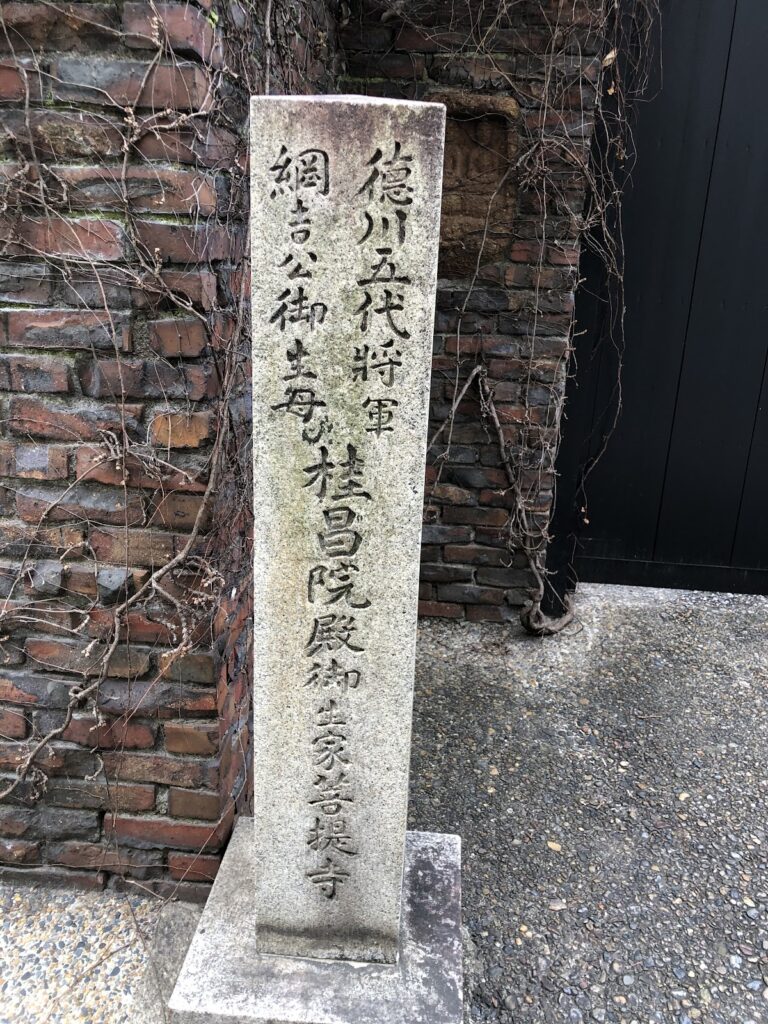 德川五代將軍
綱吉公御生母
桂昌院殿御生家菩提寺